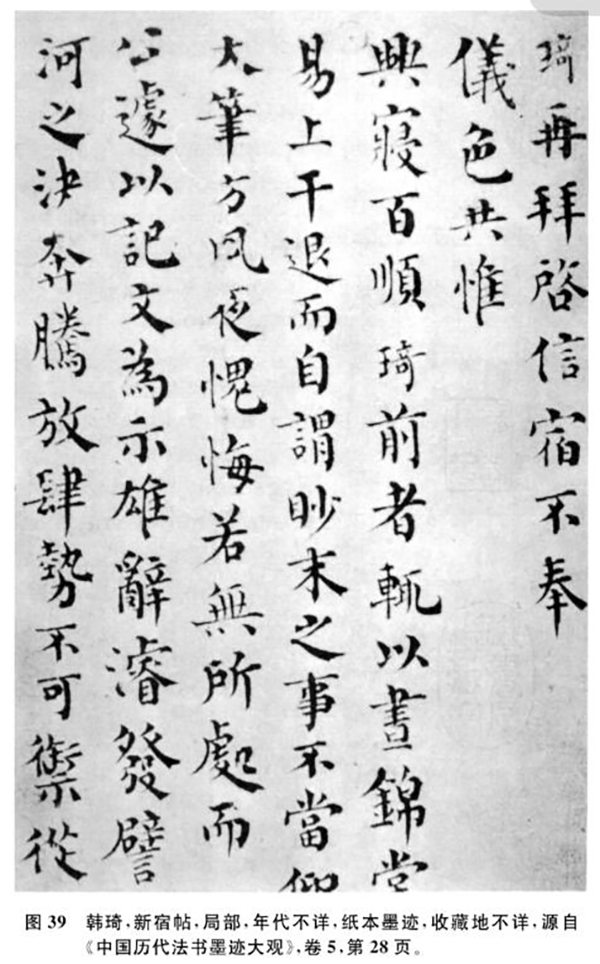 琦再拜啓信宿不奉
儀色共惟
興寢百順琦前者輒以晝錦堂
易上干退而自謂眇末之事不當仰
大筆方夙夜愧悔若無所處而
公遽以記文為示雄辭濬發譬
河之決奔騰放肆勢不可禦從
图39 韩琦,新宿帖,局部,年代不详,纸本墨迹,收藏地不详,源自
《中国历代法书墨迹大观》,卷5,第28页。